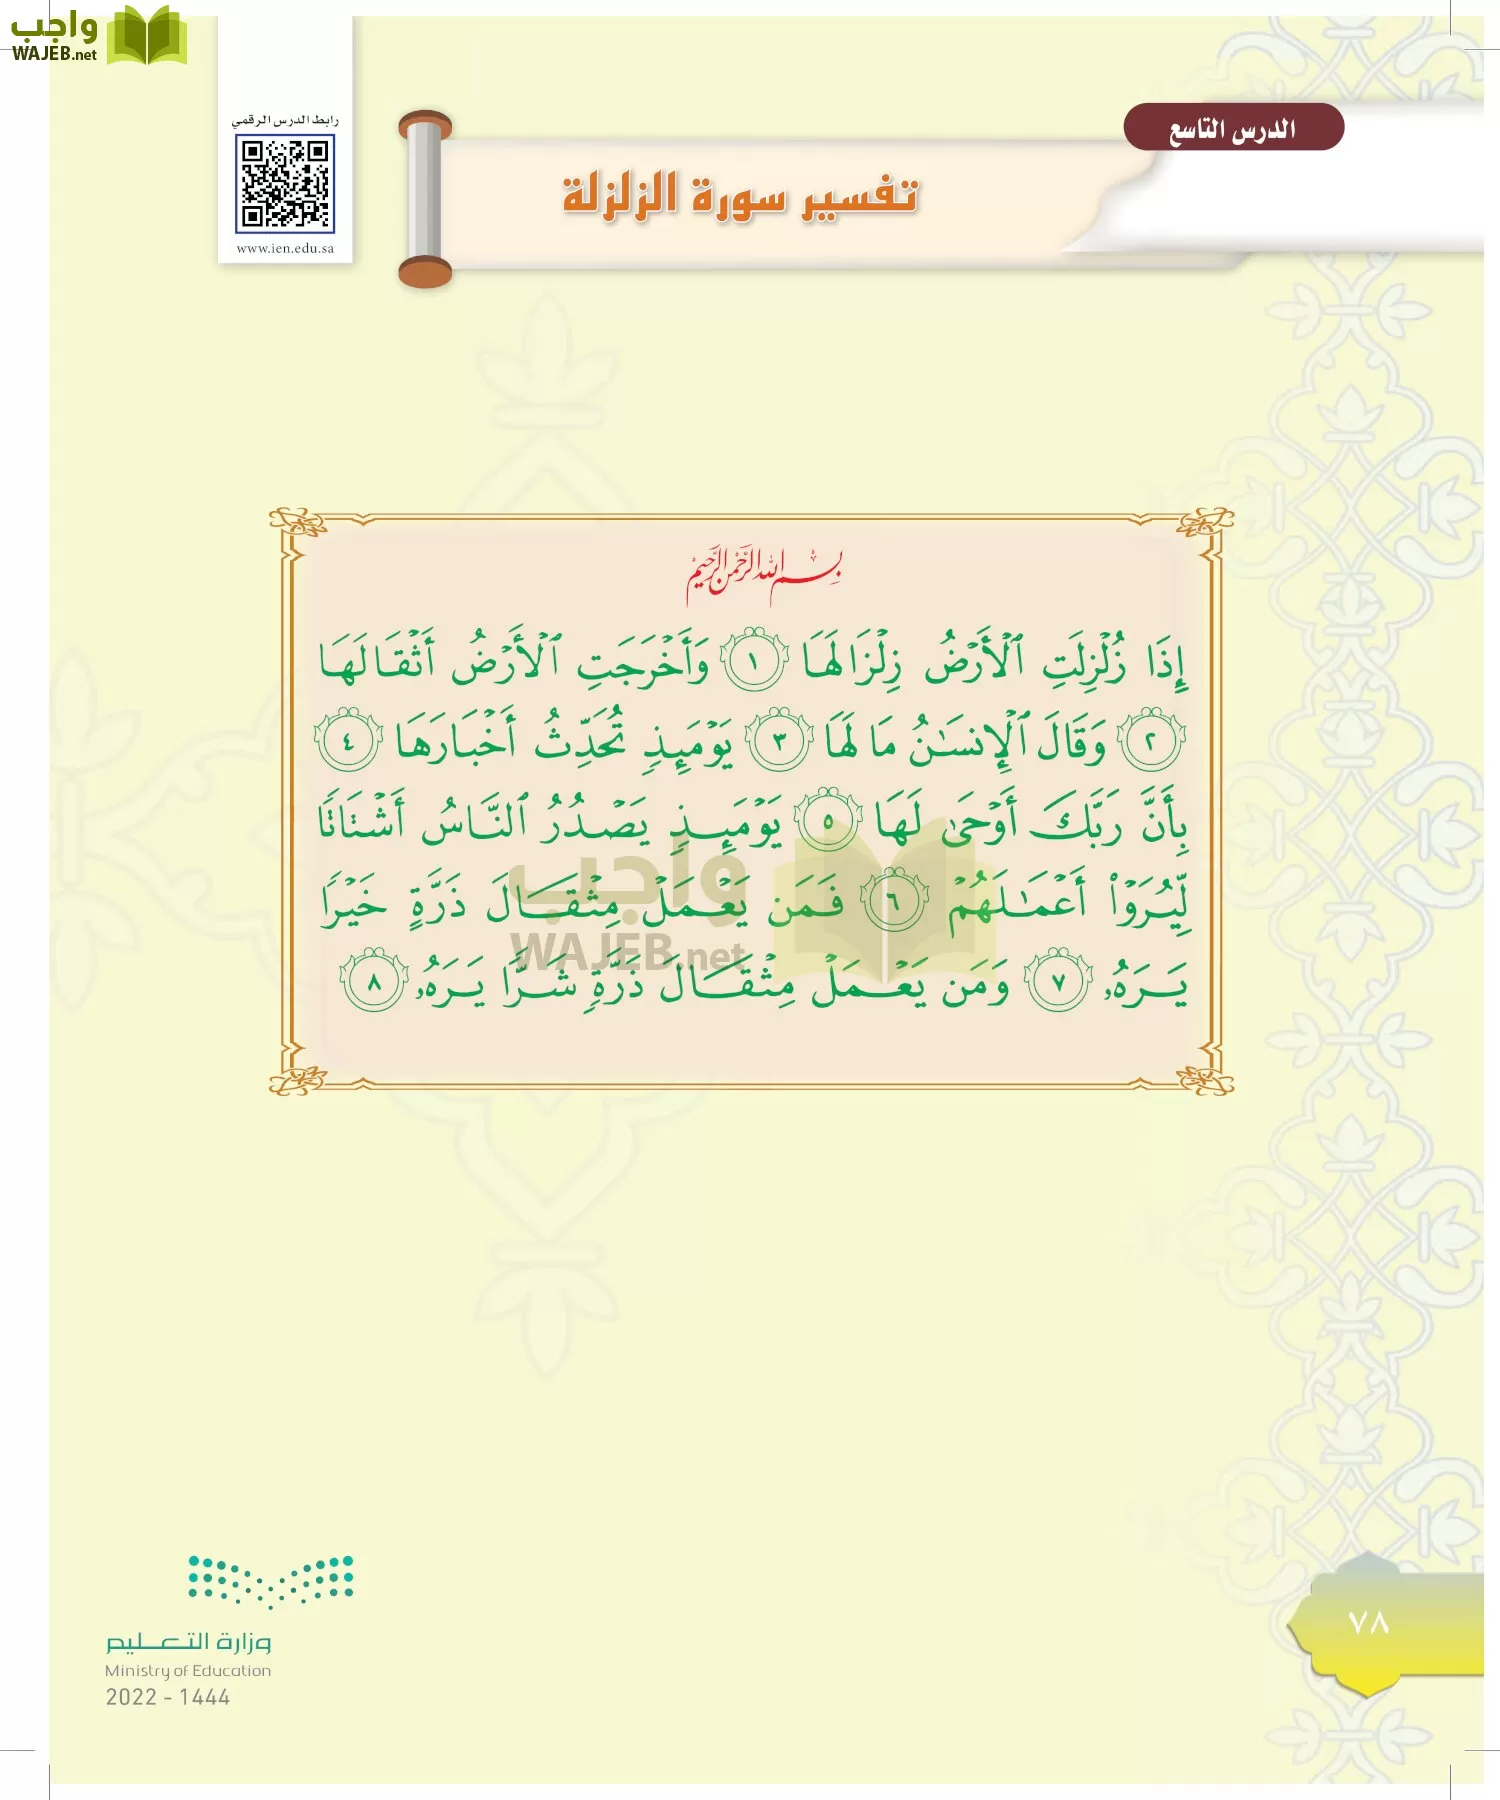 واجب
WAJEB.net
رابط الدرس الرقمي
www.ien.edu.sa
الدرس التاسع
تفسير سورة الزلزلة
بِسْمِ اللهِ الرَّحْمَنِ الرَّحِيمِ
إِذَا زُلْزِلَتِ ٱلْأَرْضُ زِلْزَالَهَا ١ وَأَخْرَجَتِ ٱلْأَرْضُ أَثْقَالَهَا
٢ وَقَالَ ٱلْإِنسَٰنُ مَا لَهَا ٣ يَوْمَئِذٍ تُحَدِّثُ أَخْبَارَهَا ٤
بِأَنَّ رَبَّكَ أَوْحَىٰ لَهَا ٥ يَوْمَئِذٍ يَصْدُرُ ٱلنَّاسُ أَشْتَاتًا
لِّيُرَوْا۟ أَعْمَٰلَهُمْ ٦ فَمَن يَعْمَلْ مِثْقَالَ ذَرَّةٍ خَيْرًا
يَرَهُۥ ٧ وَمَن يَعْمَلْ مِثْقَالَ ذَرَّةٍ شَرًّا يَرَهُۥ ٨
واجب
WAJEB.net
٧٨
وزارة التعليم
Ministry of Education
2022 - 1444